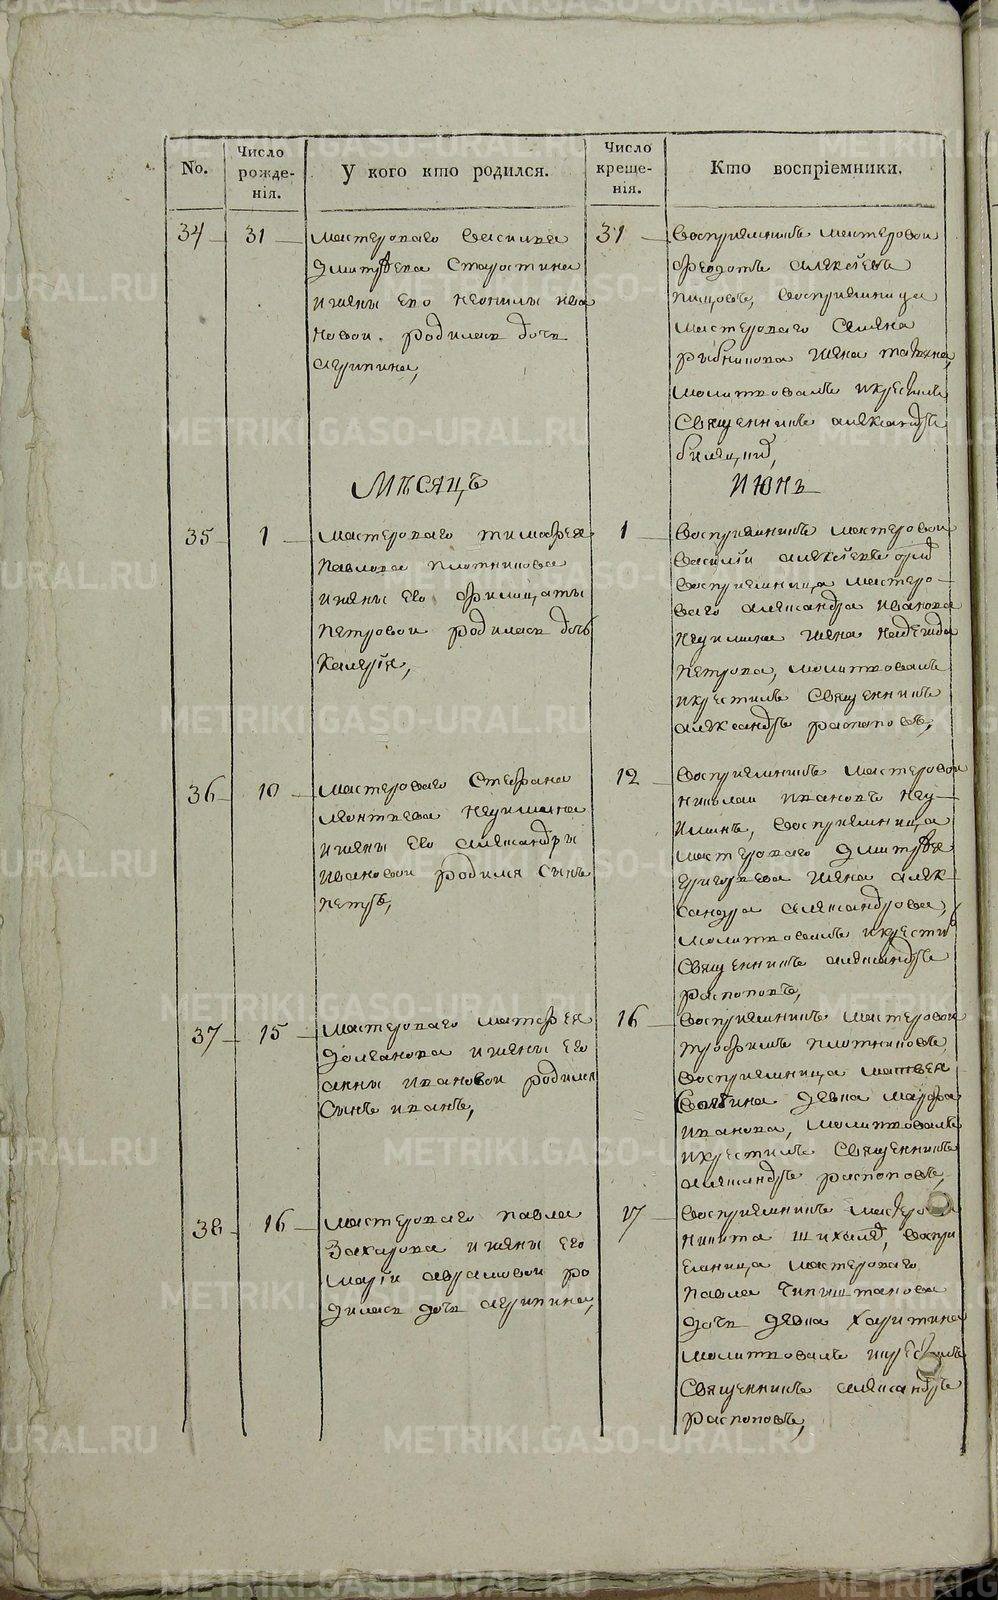 No.
Число рожде-нія.
У кого кто родился.
Число креще-нія.
Кто воспріемники.
34
31
мастероваго Василья
Дмитрѣева Старостина
и жены его неонилы ива
новой, родилась дочь
агрипина,
31
Воспріемникъ мастеровой
феодотъ алексѣевъ
пицовъ, воспріемница
мастероваго Семена
рыбникова жена татьяна,
молитвовалъ и крестилъ
Священникъ александръ
Мѣсяцъ
Июнь
35
1
мастероваго тимофея
Павлова плотникова
и жены его филицаты
Петровой родилась дочь
Калерія,
1
Воспріемникъ мастеровой
Василій алексѣевъ
воспріемница мастеро-
ваго александра иванова
неуимина жена надежда
петрова, молитвовалъ
и крестилъ Священникъ
александръ распоповъ,
36
10
мастероваго Стефана
леонтьева неуимина
и жены его александры
ивановой родился Сынъ
петръ,
12
Воспріемникъ мастеровой
николай ивановъ неу-
иминъ, воспріемница
мастероваго Дмитрѣя
григорьева жена алек
сандра александрова,
молитвовалъ и крестил
Священникъ александръ
распоповъ,
37
15
мастероваго матфея
Долганова и жены его
анны ивановой родился
Сынъ иванъ,
16
Воспріемникъ мастеровой
трофимъ плотниковъ,
воспріемница матвея
девка марфа
иванова, молитвовалъ
и крестилъ Священникъ
александръ распоповъ,
38
16
мастероваго павла
Захарова и жены его
маріи аврамовой ро
дилась дочь агрипина,
17
Воспріемникъ мастеровой
никита шихалѣ, воспрі
емница мастероваго
павла
дочь девка харитина
молитвовалъ и крестилъ
Священникъ александръ
распоповъ,
METRIKI.GASO-URAL.RU